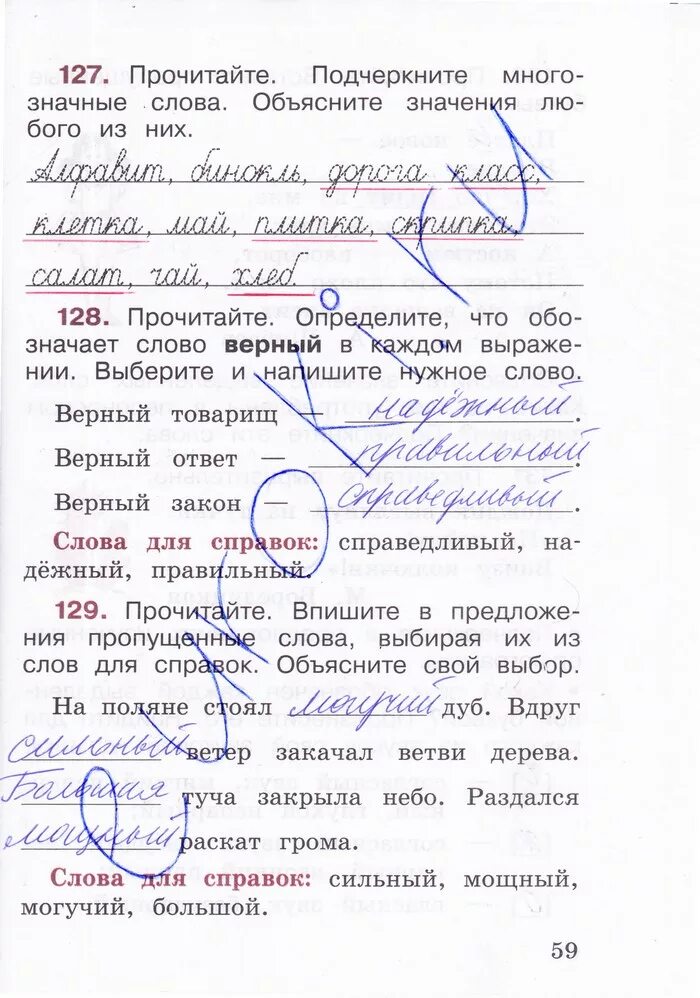 127. Прочитайте. Подчеркните много-
значные слова. Объясните значения лю-
бого из них.
Алфавит, бинокль, дорога, класс,
клетка, май, плитка, скрипка,
салат, чай, хлеб.
128. Прочитайте. Определите, что обо-
значает слово верный в каждом выраже-
нии. Выберите и напишите нужное слово.
Верный товарищ — надёжный.
Верный ответ — правильный.
Верный закон — справедливый.
Слова для справок: справедливый, на-
дёжный, правильный.
129. Прочитайте. Впишите в предложе-
ния пропущенные слова, выбирая их из
слов для справок. Объясните свой выбор.
На поляне стоял могучий дуб. Вдруг
сильный ветер закачал ветви дерева.
Большая туча закрыла небо. Раздался
мощный раскат грома.
Слова для справок: сильный, мощный,
могучий, большой.
59